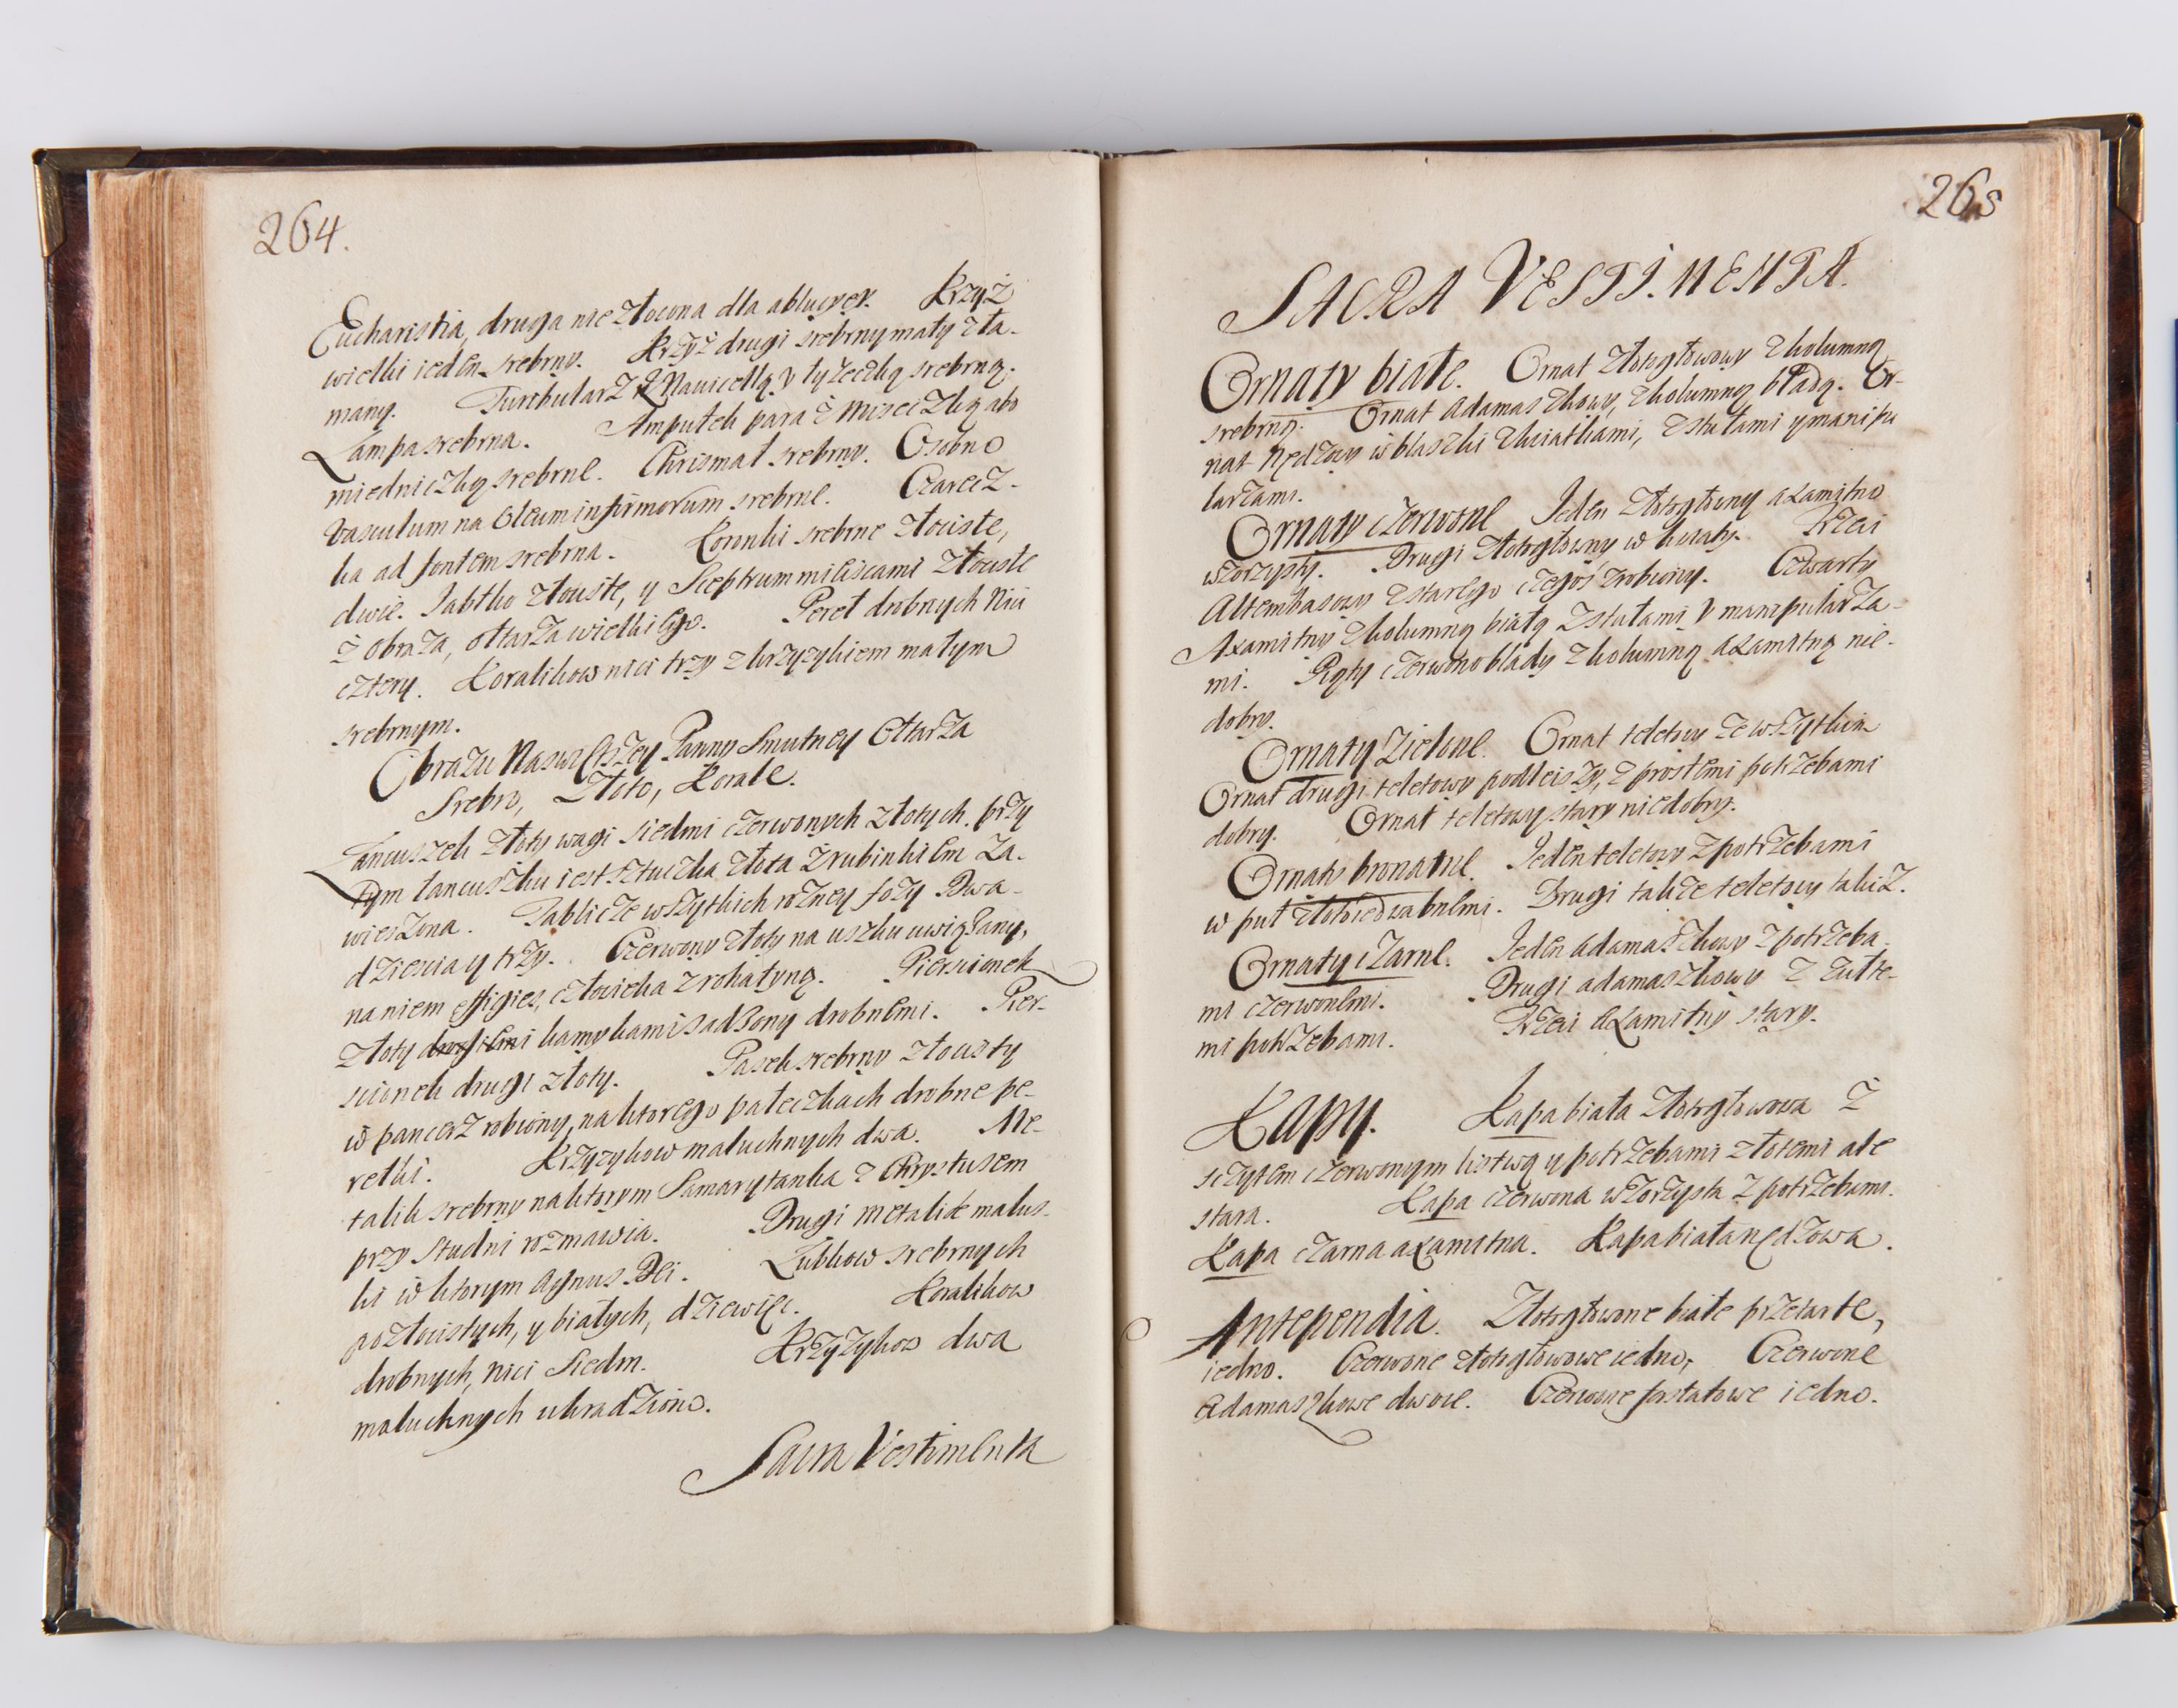 264.
Eucharistia, druga nie złocona dla ablucyey. Krzyż
wielki ieden srebrny. Krzyż drugi srebrny mały zła-
many. Turibularz z Nawicellą y łyżeczką srebrną.
Lampa srebrna. Ampułek para z miseczką abo
miedniczką srebrne. Chrismał srebrny. Osobno
Vasculum na Oleum infirmorum srebrne. Czarecz-
ka ad fontem srebrna. Koronki srebrne złociste,
dwie. Jabłko złociste, y Sceptrum mieiscami złociste
z obraza, ołtarza wielkiego. Pereł drobnych nici
cztery. Koralikow nici trzy z krzyzykiem małym
srebrnym.
Obrazu Naswiętszey Panny Smutney Ołtarza
Srebro, Złoto, Korale.
Łancuszek złoty wagi siedmi czerwonych złotych. przy
tym łancuszku iest sztuczka złota z rubinkiem za-
wieszona. Tablicze wszytkich rożney foży Dwa-
dziescia y trzy. Czerwony złoty na uszku uwiązany,
na niem effigies, człowieka z rohatyną. Pierscionek
złoty kamykami sadzony drobnemi. Pier-
scionek drugi złoty. Pasek srebrny złocisty
w pancerz robiony, na ktorego pałeczkach drobne pe-
rełki. Krzyzykow maluchnych dwa. Me-
talik srebrny na ktorym Samarytanka z Chrystusem
przy studni rozmawia. Drugi metalik malus-
ki w ktorym Agnus Dei. Ząbkow srebrnych
pozłocistych, y białych, dziewięc. Koralikow
drobnych, nici siedm. Krzyzykow dwa
maluchnych ukradziono.
Sacra Vestimenta
265
SACRA VESTIMENTA.
Ornaty białe. Ornat złotogłowowy z kolumną
srebrną. Ornat Adamaszkowy, z kolumną bładą. Or-
nat Nędzowy w blaszki z kwiatkami, z stułami y manipu
larzami.
Ornaty czerwone Jeden złotogłowny axamitno
wzorzysty. Drugi złotogłowny w kwiaty. Trzeci
Altembasowy z starego czegoś zrobiony. Czwarty
Axamitny z kolumną białą z stułami y manipularza-
mi. Piąty czerwono blady z kolumną axamitną nie-
dobry.
Ornaty zielone. Ornat teletowy ze wszytkim
Ornat drugi teletowy podleiszy, z prostemi potrzebami
dobry. Ornat teletowy stary niedobry.
Ornaty bronatne. Jeden teletowy z potrzebami
w puł złoto iedwabnemi. Drugi takze teletowy takiz.
Ornaty czarne. Jeden adamaszkowy z potrzeba-
mi czerwonemi. Drugi adamaszkowy z zułte-
mi potrzebami. Trzeci axamitny stary.
Kapy. Kapa biała złotogłowowa z
sczytem czerwonym listwą y potrzebami złotemi ale
stara. Kapa czerwona wzorzysta z potrzebami.
Kapa czarna axamitna. Kapa biała nędzowa.
Antependia. Złotogłowone białe przetarte,
iedno. Czerwone złotogłowowe iedno, Czerwone
adamaszkowe dwoie. Czerwone forstatowe iedno.